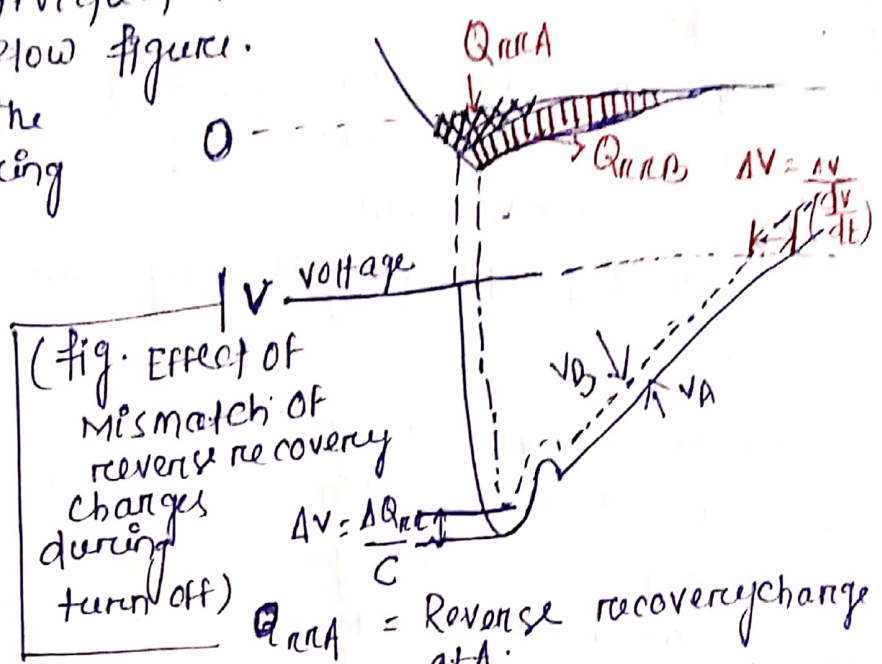 elow figure.
he
cing
QrrA
0
QrrB
ΔV = ΔV / (dv/dt)
V voltage
(fig. Effect of
Mismatch of
reverse recovery
charges
during
turn off)
VB
VA
ΔV = ΔQrr / C
QrrA = Reverse recoverycharge
at A.